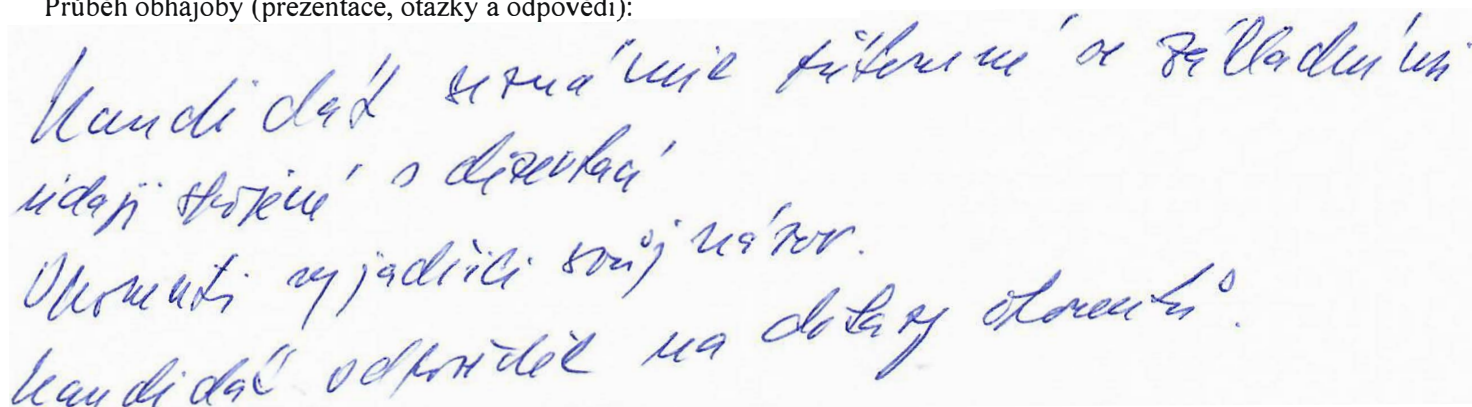 Průběh obhajoby (prezentace, otázky a odpovědi):
Kandidát seznámil přítomné se základními
údaji spojené s disertací
Oponenti vyjádřili svůj názor.
Kandidát odpověděl na dotazy oponentů.